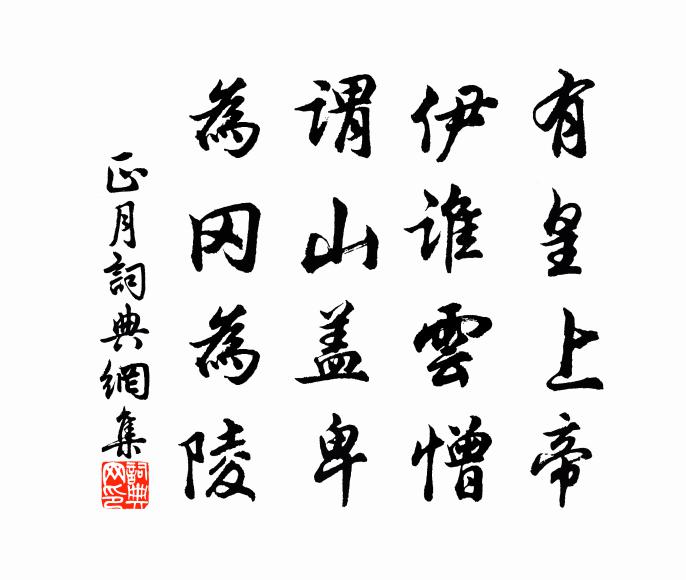 有皇上帝
伊誰雲憎
謂山盖卑
為冈為陵
正月詞典網集
詞典网印